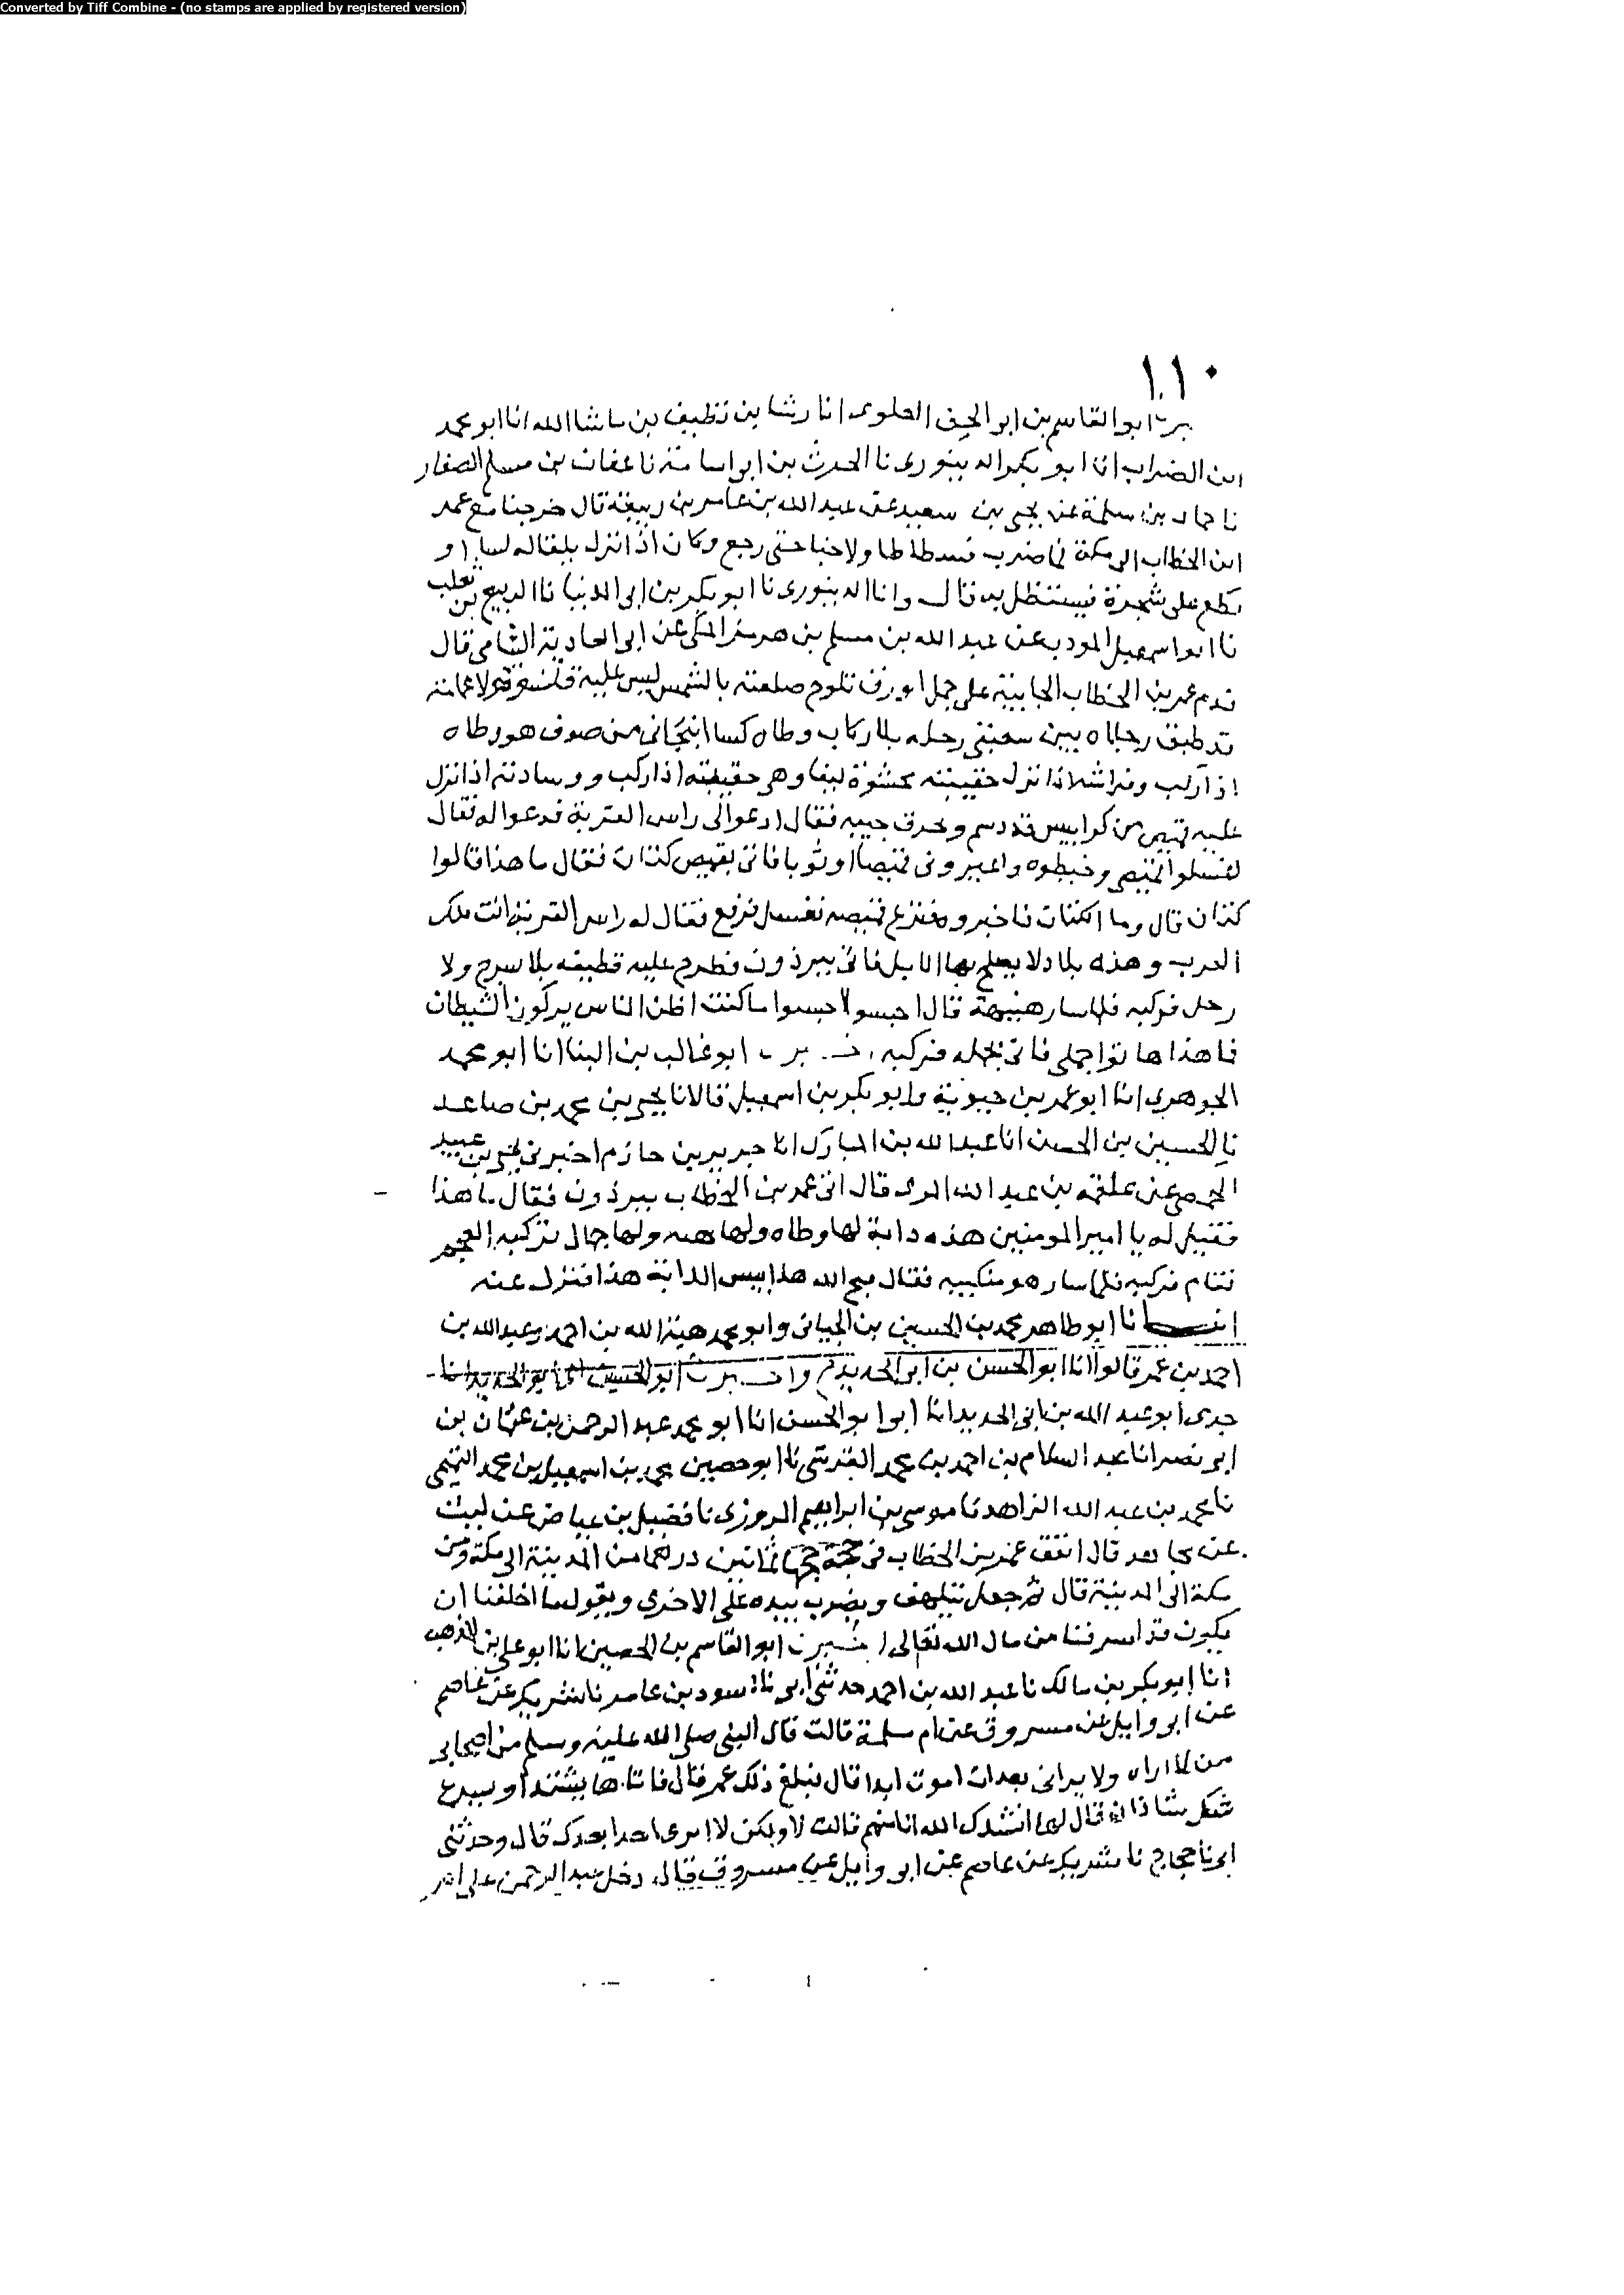 Converted by Tiff Combine - (no stamps are applied by registered version)
١١٠
برنا ابو القاسم بن ابو الحسن العلوى انا رشا بن نظيف بن ماشا الله انا ابو محمد
ابن الضراب انا ابو بكر الدينورى نا الحرث بن ابو اسامة نا عفان بن مسلم الصفار
نا حماد بن سلمة عن يحيى بن سعيد عن عبد الله بن عامر بن ربيعة قال خرجنا مع عمر
ابن الخطاب الى مكة فما ضرب فسطاطا ولا خبا حتى رجع وكان اذا نزل يلقا له كسا او
نطع على شجرة فيستظل به قال وانا الدينورى نا ابو بكر بن ابى الدنيا نا الربيع بن ثعلب
نا ابو اسمعيل المودب عن عبد الله بن مسلم بن هرمز المكى عن ابى العادية الشامى قال
قدم عمر بن الخطاب الجابية على جمل اورق تلوح صلعته بالشمس ليس عليه قلنسوة ولا عمامة
قد طبق رجلاه بين سعبتى رحله بلا ركاب وطاه كسا انبجانى من صوف هو وطاه
اذا ركب وفراشه اذا نزل حقيبته محشوة ليفا وهى حقيبته اذا ركب ووسادته اذا نزل
عليه قميص من كرابيس قد دسم وتخرق جيبه فقال ادعوا لى راس القرية فدعوا له فقال
اغسلوا قميصى وخيطوه واعيرونى قميصا او ثوبا فاتى بقميص كتان فقال ما هذا قالوا
كتان قال وما الكتان فاخبروه فنزع قميصه فغسل فرفع فقال له راس القرية انت ملك
العرب وهذه بلاد لا يصلح بها الابل فاتى ببرذون فطرح عليه قطيفه بلا سرج ولا
رحل فركبه فلما سار هنيهة قال احبسوا احبسوا ما كنت اظن الناس يركبون الشيطان
فاهذا هاتوا جملى فاتى بجمله فركبه اخبرنا ابو غالب بن البنا انا ابو محمد
الجوهرى انا ابو عمر بن حيوية وابو بكر بن اسمعيل قالا نا يحيى بن محمد بن صاعد
نا الحسين بن الحسن انا عبد الله بن المبارك انا جرير بن حازم اخبرنى يحيى بن عبيد
الجهضمى عن علقمه بن عبد الله المزنى قال اتى عمر بن الخطاب ببرذون فقال ما هذا
فقيل له يا امير المومنين هذه دابة لها وطاه ولها هيه ولها جمال تركبه العجم
فقام فركبه فلما سار هز منكبيه فقال قبح الله هذا بيس الدابة هذا فنزل عنه
انبـانا ابو طاهر محمد بن الحسين بن الحنائى وابو محمد هبة الله بن احمد وعبد الله بن
احمد بن عمر قالوا انا ابو الحسن بن ابى الحديد ح واخبرنا ابو الحسين بن ابو الحديد انا
جدى ابو عبد الله بن ابى الحديد انا ابوا بو الحسن انا ابو محمد عبد الرحمن بن عثمان بن
ابى نصر انا عبد السلام بن احمد بن محمد القرشى نا ابو حصين محمد بن اسمعيل بن محمد التميمى
نا محمد بن عبد الله الزاهد نا موسى بن ابراهيم المروزى نا فضيل بن عياض عن ليث
عن مجاهد قال انفق عمر بن الخطاب فى حجة حجها ثمانين درهما من المدينة الى مكة ومن
مكة الى المدينة قال ثم جعل يتلهف ويضرب بيده على الاخرى ويقول ما اخلقنا ان
يكون قد اسرفنا من مال الله تعالى اخبرنا ابو القاسم بن الحصين انا ابو على بن المذهب
انا ابو بكر بن مالك نا عبد الله بن احمد حدثنى ابى نا اسود بن عامر نا شريك عن عاصم
عن ابو وايل عن مسروق عن ام سلمة قالت قال النبى صلى الله عليه وسلم من اصحابى
من لا اراه ولا يرانى بعد ان اموت ابدا قال فبلغ ذلك عمر قال فاتاها يشتد او يسرع
شك شاذان قال لها انشدك الله انا منهم قالت لا ولكن لا ابرى احدا بعدك قال وحدثنى
ابى نا حجاج نا شريك عن عاصم عن ابو وايل عن مسروق قال دخل عبد الرحمن على ام